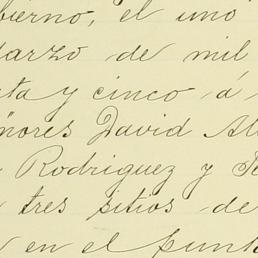 bierno, el uno
Marzo de mil
nta y cinco á
ñores David Al
Rodriguez y Te
tres sitios de
en el punt